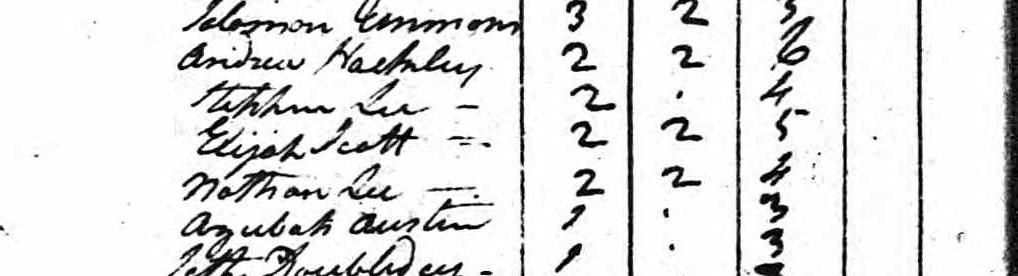 Solomon Emmons 3 2 3
Andrew Hackley 2 2 6
Stephen Lee - 2 . 4
Elijah Scott - 2 2 5
Nathan Lee - 2 2 4
Azubah Austin 1 . 3
Seth Doubleday - 1 . 3